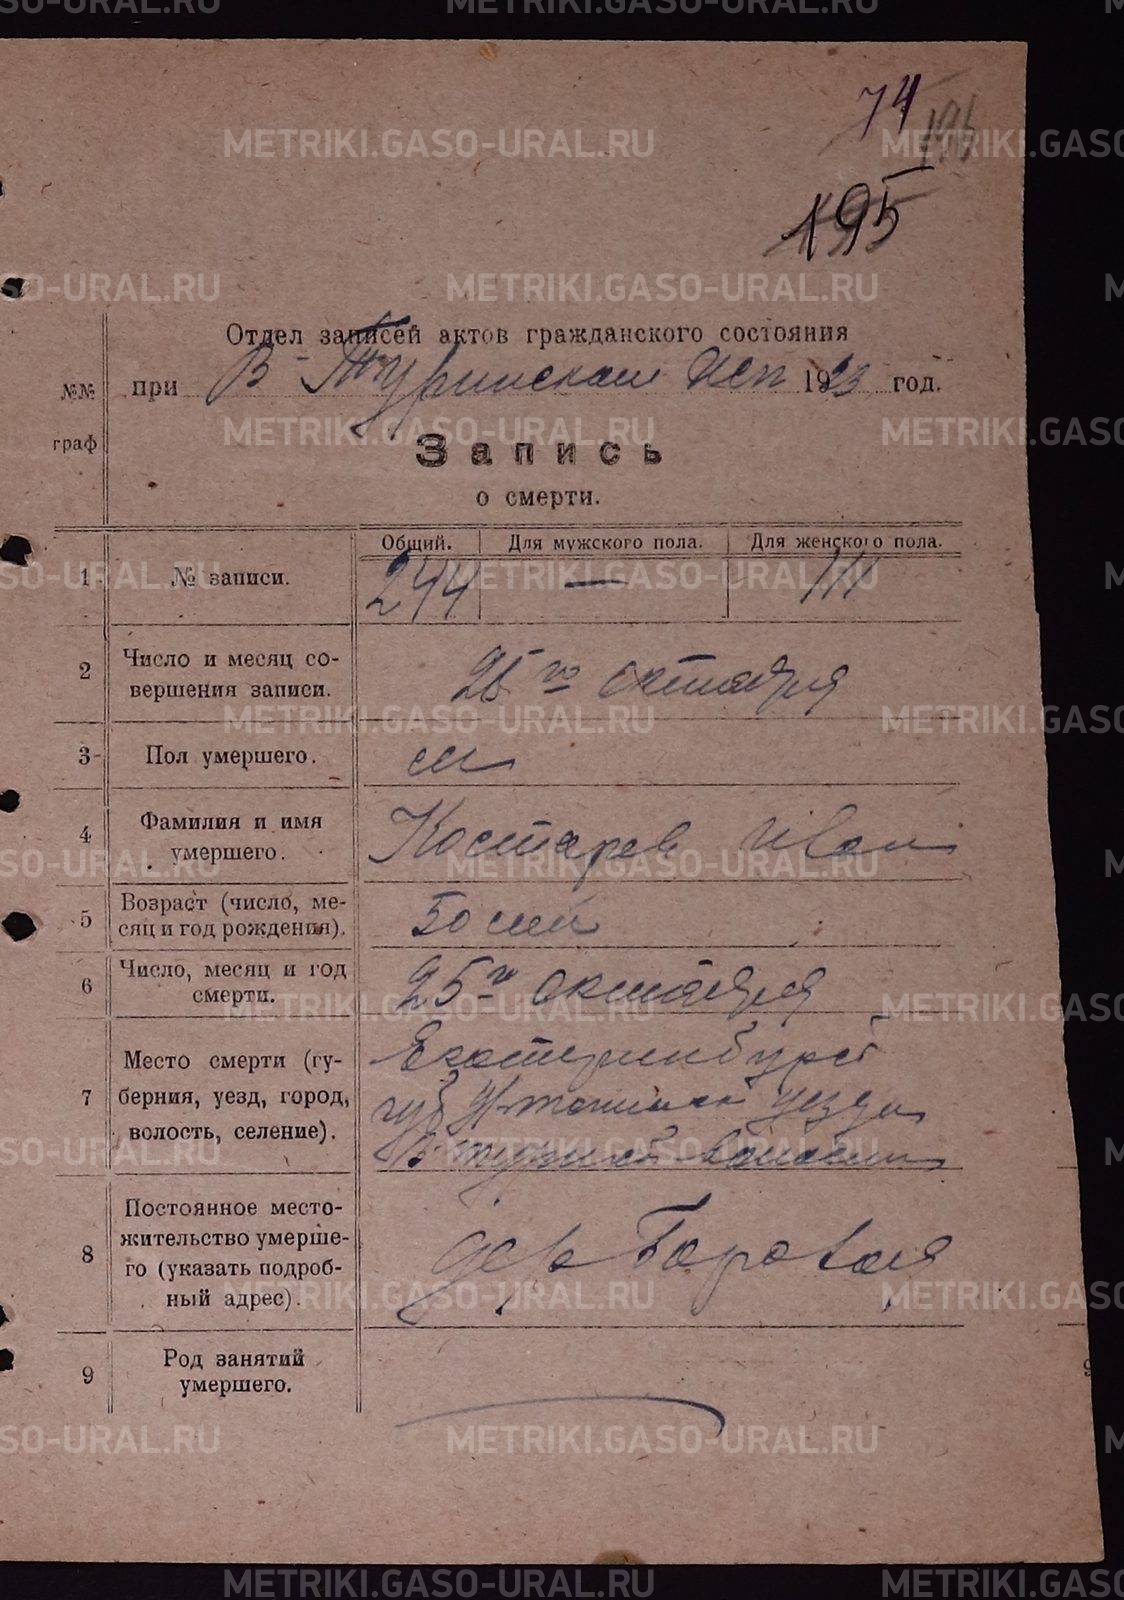 74
195
Отдел записей актов гражданского состояния
№№ граф
при В-Туринском Исп 1923 год.
Запись
о смерти.
Общий. Для мужского пола. Для женского пола.
1 № записи. 244 — 111
2 Число и месяц со-
вершения записи. 26 го октября
3 Пол умершего. м
4 Фамилия и имя
умершего. Костарев Иван
5 Возраст (число, ме-
сяц и год рождения).
6 Число, месяц и год
смерти. 25 го октября
7 Место смерти (гу-
берния, уезд, город,
волость, селение). Екатеринбургс
губ Н-тагильск уезда
В туринск волости
8 Постоянное место-
жительство умерше-
го (указать подроб-
ный адрес). дер Боровая
9 Род занятий
умершего.
METRIKI.GASO-URAL.RU